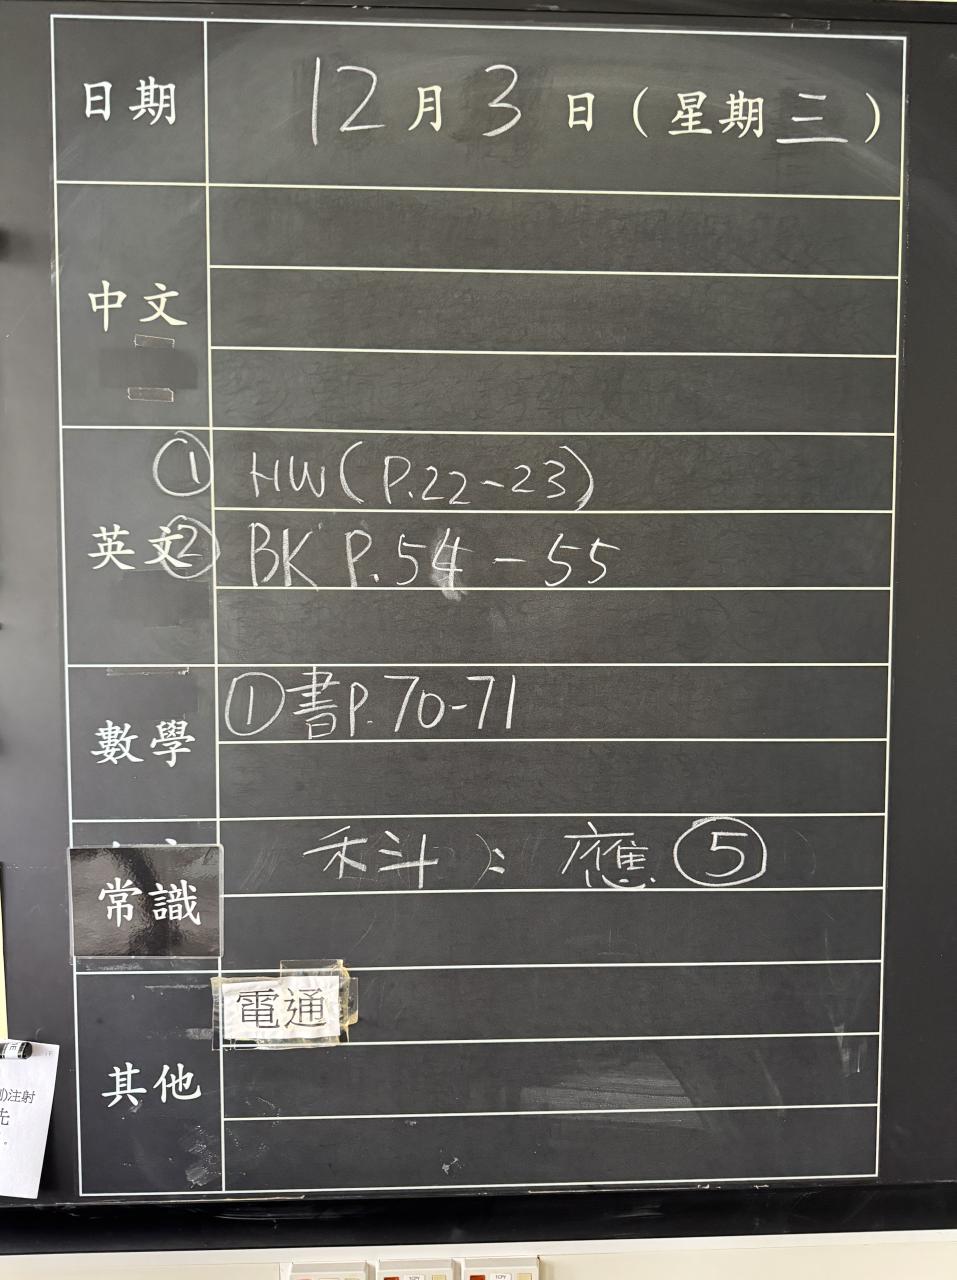 日期 12月3日(星期三)
中文
① HW(P.22-23)
英文 ② BK P.54-55
數學 ①書P.70-71
科斗：應⑤
常識
電通
其他
注射
先